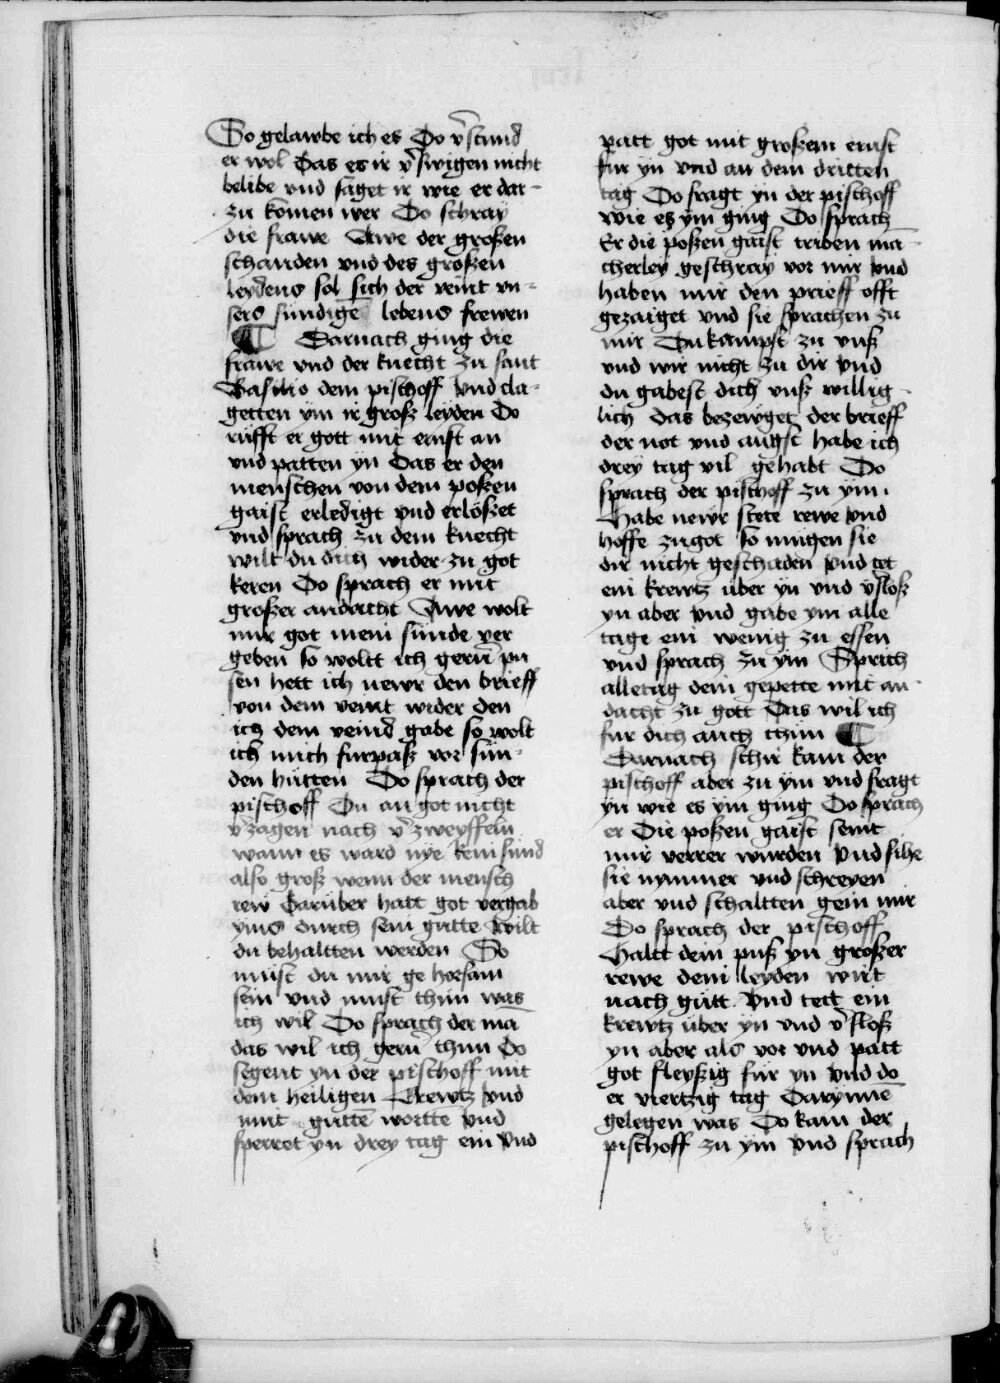 So gelawbe ich es Do v̄stund
er wol Das es ir v̄swigen nicht
belibe vnd saget ir wie er dar-
zu komen wer Do schray
die frawe Awe der großen
schanden vnd des großen
leydens sol sich der veint vn-
sers sündigē lebens frewen
¶ Darnach ging die
frawe vnd der knecht zu sant
Basilio dem pischoff vnd cla-
getten ym ir groß leyden Do
rüfft er gott mit ernst an
vnd patten yn Das er den
menschen von dem poßen
gaist erledigt vnd erlößet
vnd sprach zu dem knecht
wilt du dich wider zu got
keren Do sprach er mit
großer andacht Awe wolt
mir got mein sünde ver
geben so woltt ich gern̄ pü
sen hett ich newr den brieff
von dem veint wider den
ich dem veind gabe so wolt
ich mich furpaß vor sün-
den hütten Do sprach der
pischoff Du an got nicht
v̄zagen nach v̄zweyffeln
wann es ward nye kein sünd
also groß wenn der mensch
rew darüber hatt got vergab
yms durch sein gütte wilt
du behaltten werden So
must du mir ge horsam
sein vnd must thün was
ich wil Do sprach der mā
das wil ich gern̄ thun Do
segent yn der pischoff mit
dem heiligen Krewtz vnd
mit guttē wortte vnd
sperret yn drey tag ein vnd
patt got mit großem ernst
für yn vnd an dem dritten
tag Do fragt yn der pischoff
wie es ym ging Do sprach
Er die poßen gaist triben mā-
cherley geschray vor mir vnd
haben mir den prieff offt
gezaiget vnd sie sprachen zu
mir Du kampst zu vnß
vnd wir nicht zu dir vnd
du gabest dich vnß willig-
lich das bezewget der brieff
der not vnd angst habe ich
drey tag vil gehabt Do
sprach der pischoff zu ym.
Habe newr stete rewe vnd
hoffe zu got so mügen sie
dir nicht geschaden vnd tet
ein krewtz über yn vnd v̄sloß
yn aber vnd gabe ym alle
tage ein wenig zu essen
vnd sprach zu ym Sprich
alletag dein gepette mit an-
dacht zu gott Das wil ich
für dich auch thün ¶
Darnach schir kam der
pischoff aber zu ym vnd fragt
yn wie es ym ging Do sprach
er Die poßen gaist seint
mir verrer wurden vnd sihe
sie nymmer vnd schreyen
aber vnd schaltten gein mir
Do sprach der pischoff
Haltt dein puß yn großer
rewe dein leyden wirt
nach gütt vnd tett ein
krewtz über yn vnd v̄sloß
yn aber als vor vnd patt
got fleyßig für yn vnd do
er viertzig tag darynnē
gelegen was Do kam der
pischoff zu ym vnd sprach